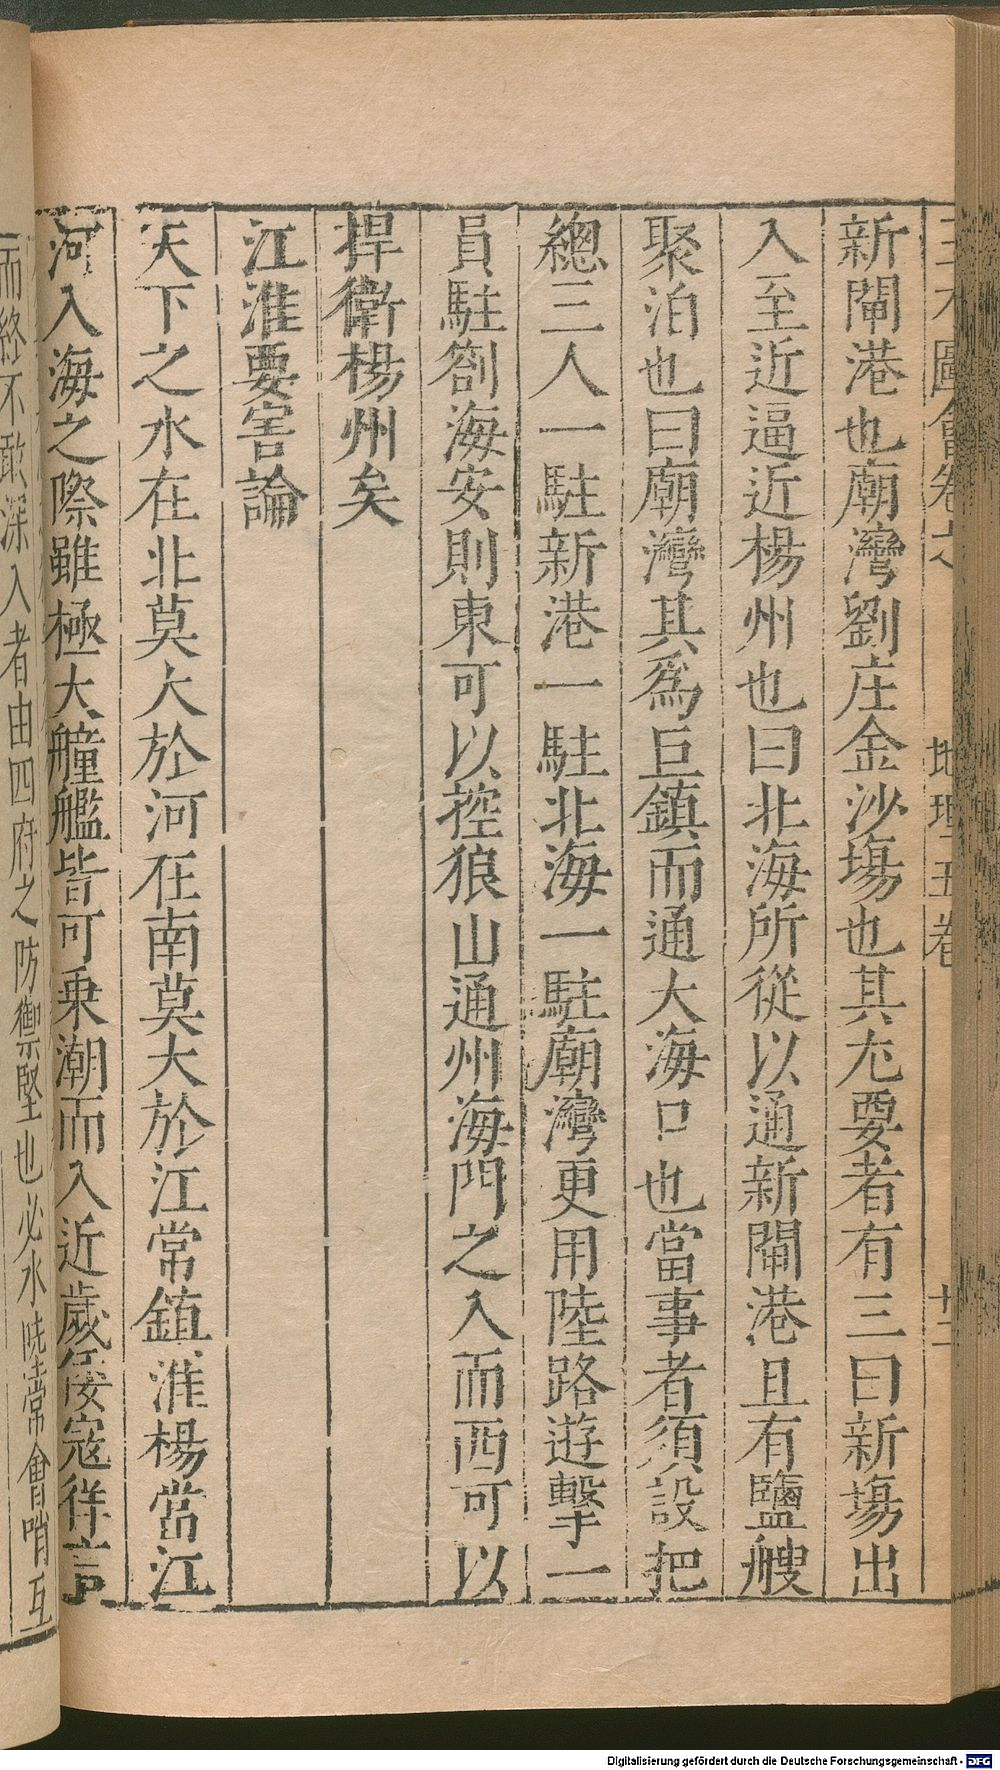 新閘港也廟灣劉庄金沙塲也其尤要者有三曰新塲出
入至近逼近楊州也曰北海所從以通新閘港且有鹽艘
聚泊也曰廟灣其爲巨鎮而通大海口也當事者須設把
總三人一駐新港一駐北海一駐廟灣更用陸路遊擊一
員駐劄海安則東可以控狼山通州海門之入而西可以
捍衛楊州矣
江淮要害論
天下之水在北莫大於河在南莫大於江常鎮淮楊當江
河入海之際雖極大艟艦皆可乗潮而入近歲倭寇徃
而終不敢深入者由四府之防禦堅也必水陸常會哨互
Digitalisierung gefördert durch die Deutsche Forschungsgemeinschaft - DFG